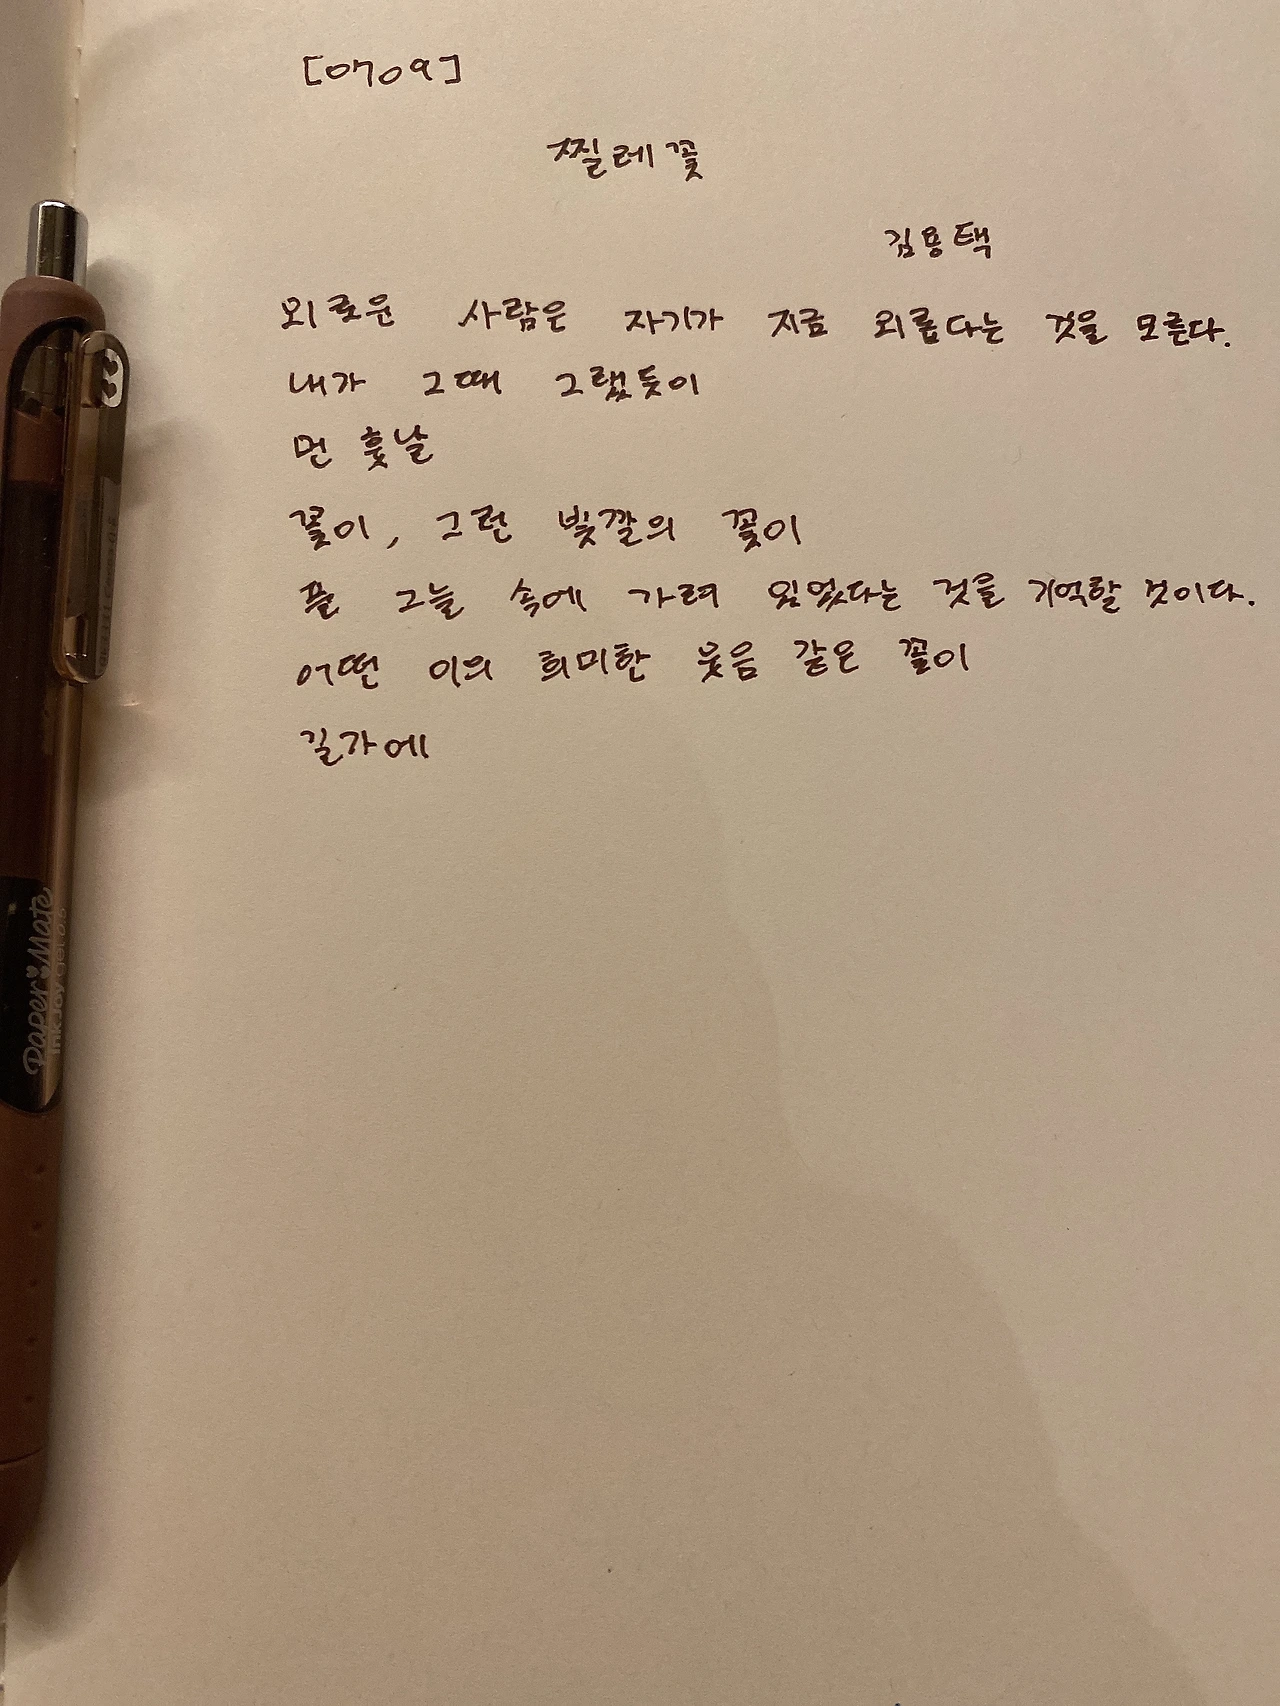 [0709]
찔레꽃
김용택
외로운 사람은 자기가 지금 외롭다는 것을 모른다.
내가 그때 그랬듯이
먼 훗날
꽃이, 그런 빛깔의 꽃이
풀 그늘 속에 가려 있었다는 것을 기억할 것이다.
어떤 이의 희미한 웃음 같은 꽃이
길가에
Paper Mate
InkJoy Gel 0.5